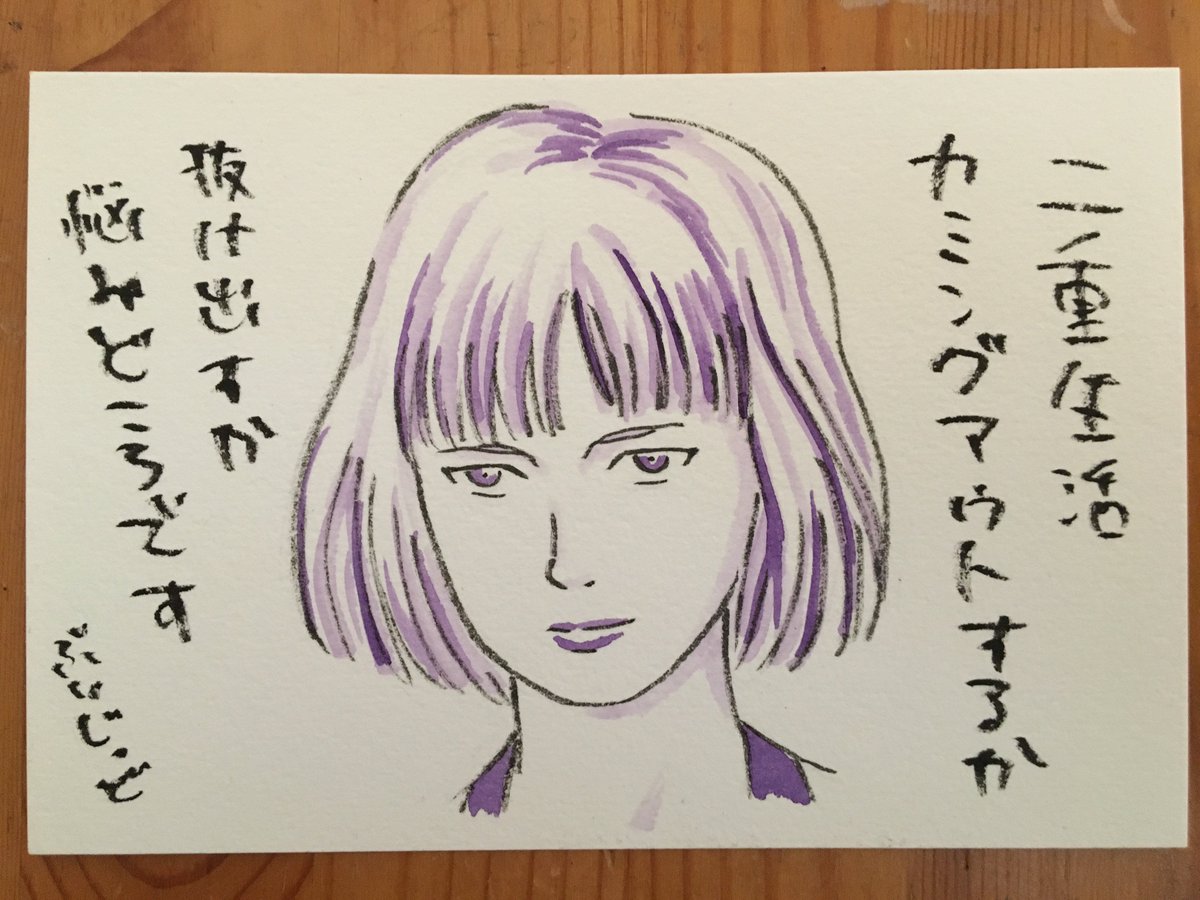 二重生活
カミングアウトするか
抜け出すか
悩みどころです